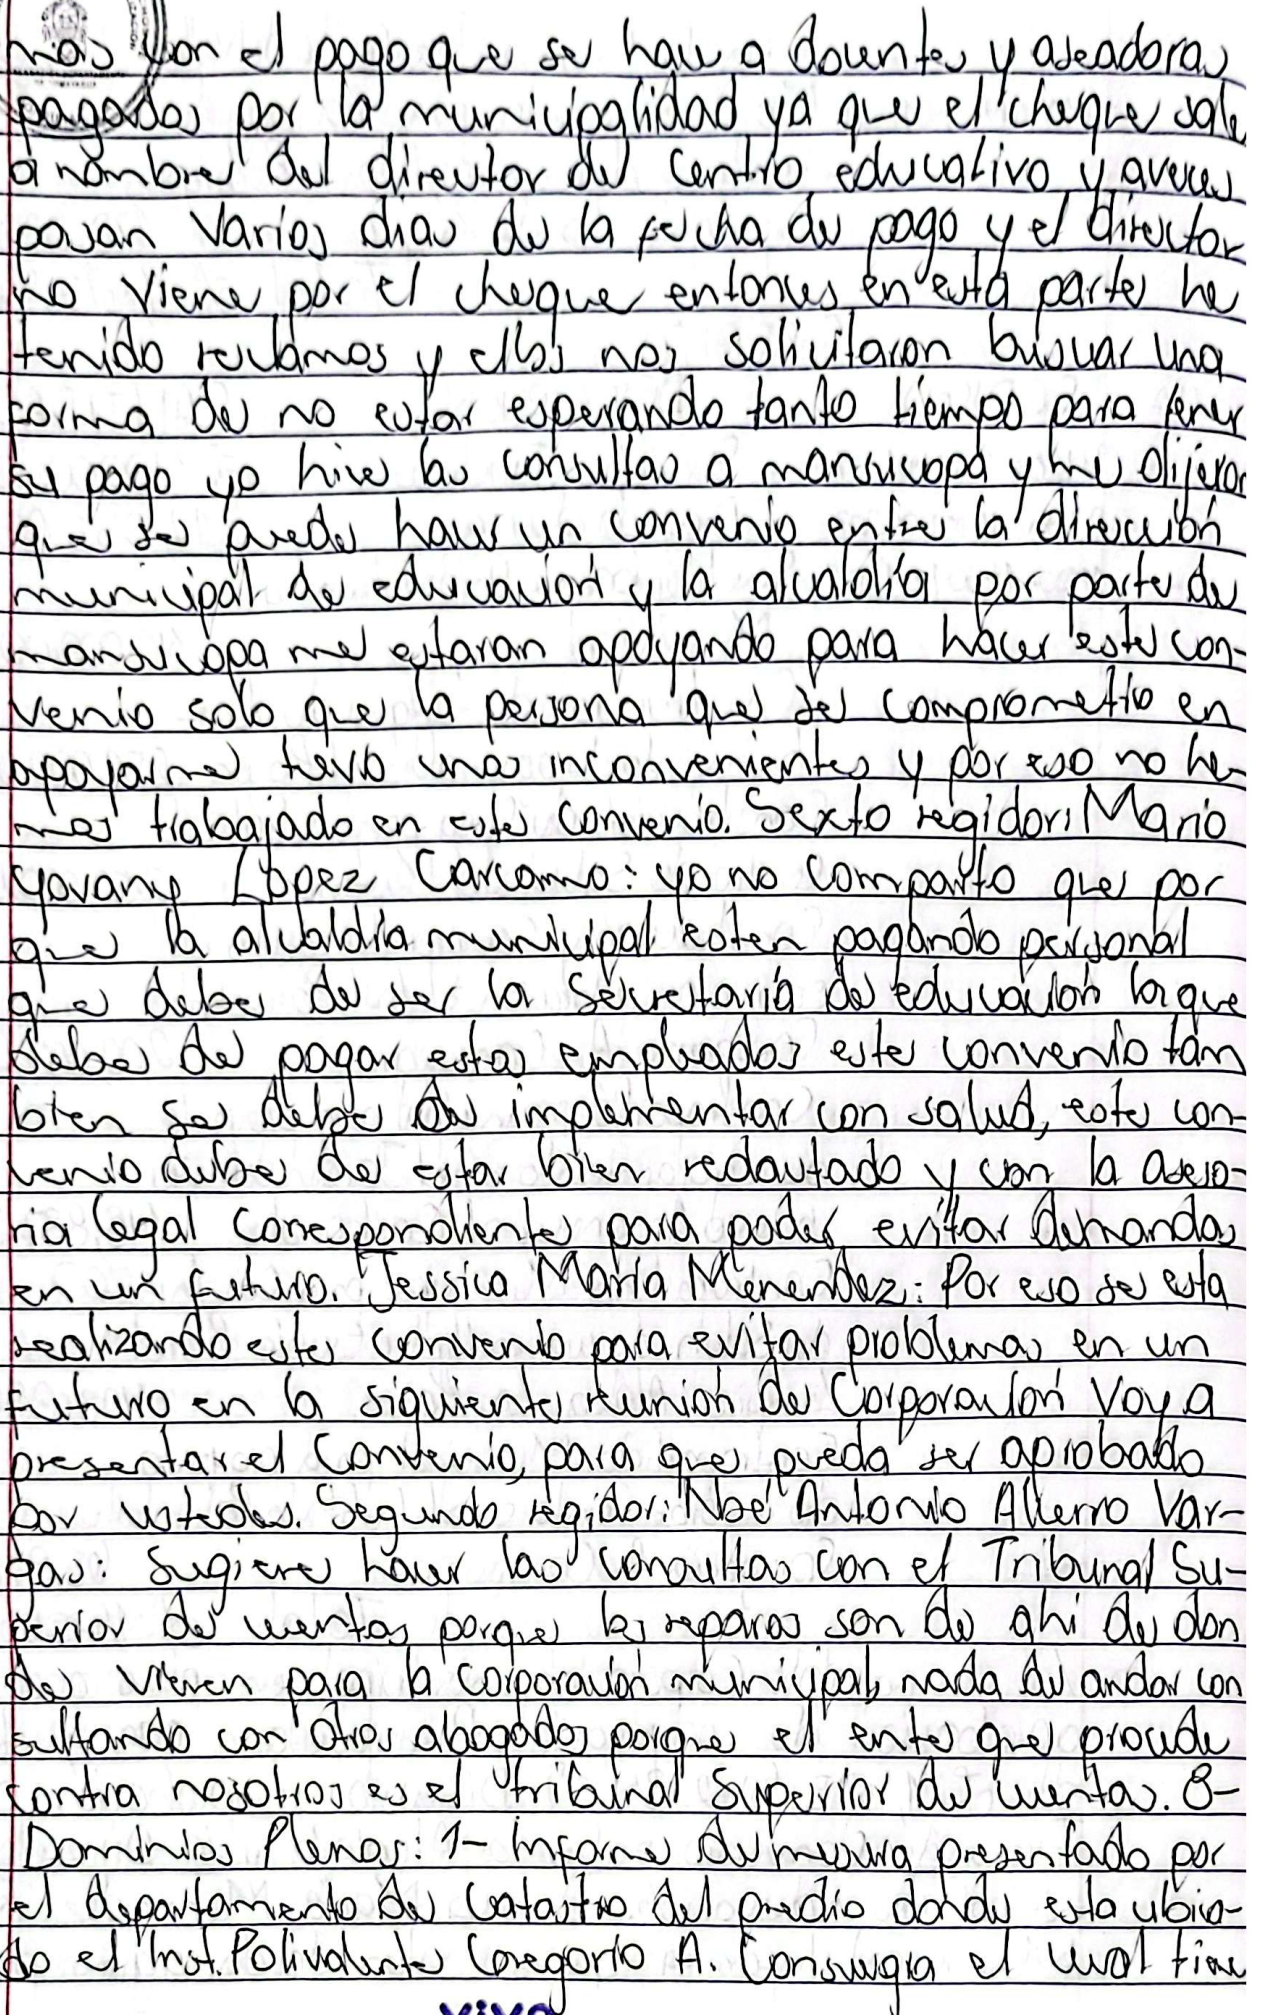 mas con el pago que se hace a docentes y aseadoras
pagadas por la municipalidad ya que el cheque sale
a nombre del director del centro educativo y aveces
pasan varios dias de la fecha de pago y el director
no viene por el cheque entonces en esta parte he
tenido reclamos y ellos nos solicitaron buscar una
forma de no estar esperando tanto tiempo para tener
su pago yo hice las consultas a mansucopa y me dijeron
que se puede hacer un convenio entre la dirección
municipal de educación y la alcaldía por parte de
mansucopa me estaran apoyando para hacer este con-
venio solo que la persona que se comprometio en
apoyarme tuvo unos inconvenientes y por eso no he-
mos trabajado en este convenio. Sexto regidor: Mario
Yovany López Carcamo: yo no comparto que por
que la alcaldía municipal esten pagando personal
que debe de ser la Secretaría de educación la que
debe de pagar estos empleados este convenio tam
bien se debe de implementar con salud, este con-
venio debe de estar bien redactado y con la aseso-
ria legal correspondiente para poder evitar demandas
en un futuro. Jessica María Menendez: Por eso se esta
realizando este convenio para evitar problemas en un
futuro en la siguiente reunión de Corporación voy a
presentar el convenio, para que pueda ser aprobado
por ustedes. Segundo regidor: Noé Antonio Var-
gas: Sugiere hacer las consultas con el Tribunal Su-
perior de cuentas porque los reparos son de ahi de don
de vienen para la corporación municipal, nada de andar con
sultando con otros abogados porque el ente que procede
contra nosotros es el tribunal Superior de cuentas. 8-
Dominios Plenos: 1- Informe de mesura presentado por
el departamento de Catastro del predio donde esta ubica-
do el Inst. Polivalente Gregorio A. Consuegra el cual tiene